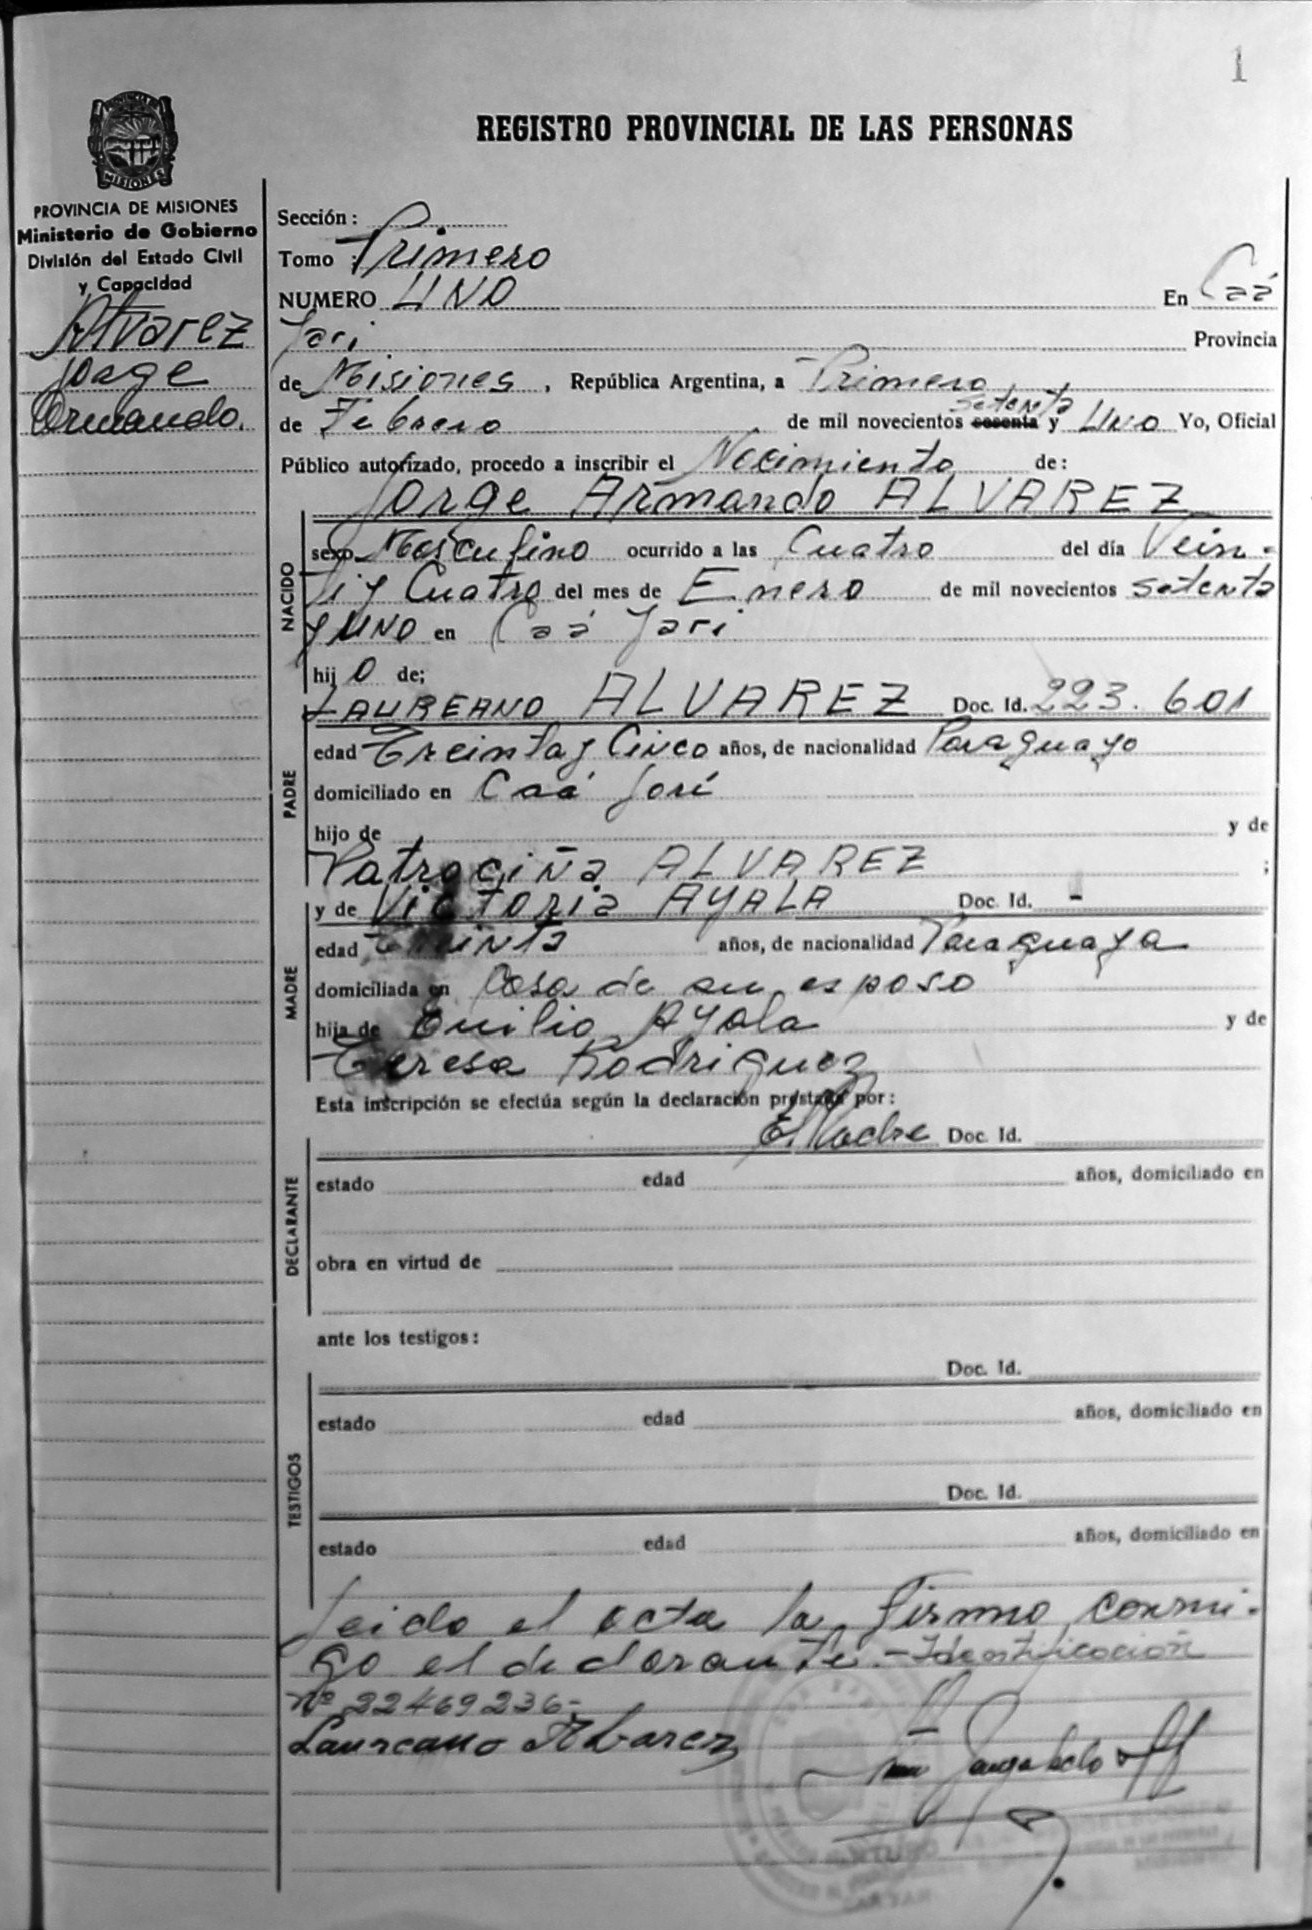 1
PROVINCIA DE MISIONES
REGISTRO PROVINCIAL DE LAS PERSONAS
PROVINCIA DE MISIONES
Ministerio de Gobierno
División del Estado Civil
y Capacidad
Alvarez
Jorge
Armando.
Sección:
Tomo Primero
NUMERO UNO En Caá
Yari Provincia
de Misiones, República Argentina, a Primero
de Febrero de mil novecientos sesenta setenta y UNO Yo, Oficial
Público autorizado, procedo a inscribir el Nacimiento de:
Jorge Armando ALVAREZ
NACIDO
sexo Masculino ocurrido a las Cuatro del día Vein-
ti y Cuatro del mes de Enero de mil novecientos setenta
y UNO en Caá Yari
hij o de;
LAUREANO ALVAREZ Doc. Id. 223.601
PADRE
edad Treinta y Cinco años, de nacionalidad Paraguayo
domiciliado en Caá Yarí
hijo de y de
Patrociña ALVAREZ ;
y de Victoria AYALA Doc. Id. -
MADRE
edad Treinta años, de nacionalidad Paraguaya
domiciliada en Casa de su esposo
hija de Emilio Ayala y de
Teresa Rodriguez
Esta inscripción se efectúa según la declaración prestada por:
El Padre Doc. Id.
DECLARANTE
estado edad años, domiciliado en
obra en virtud de
ante los testigos:
Doc. Id.
TESTIGOS
estado edad años, domiciliado en
Doc. Id.
estado edad años, domiciliado en
Leido el acta la firmo conmi-
go el declarante.- Identificación
Nº 22469236-
Laureano Albarez